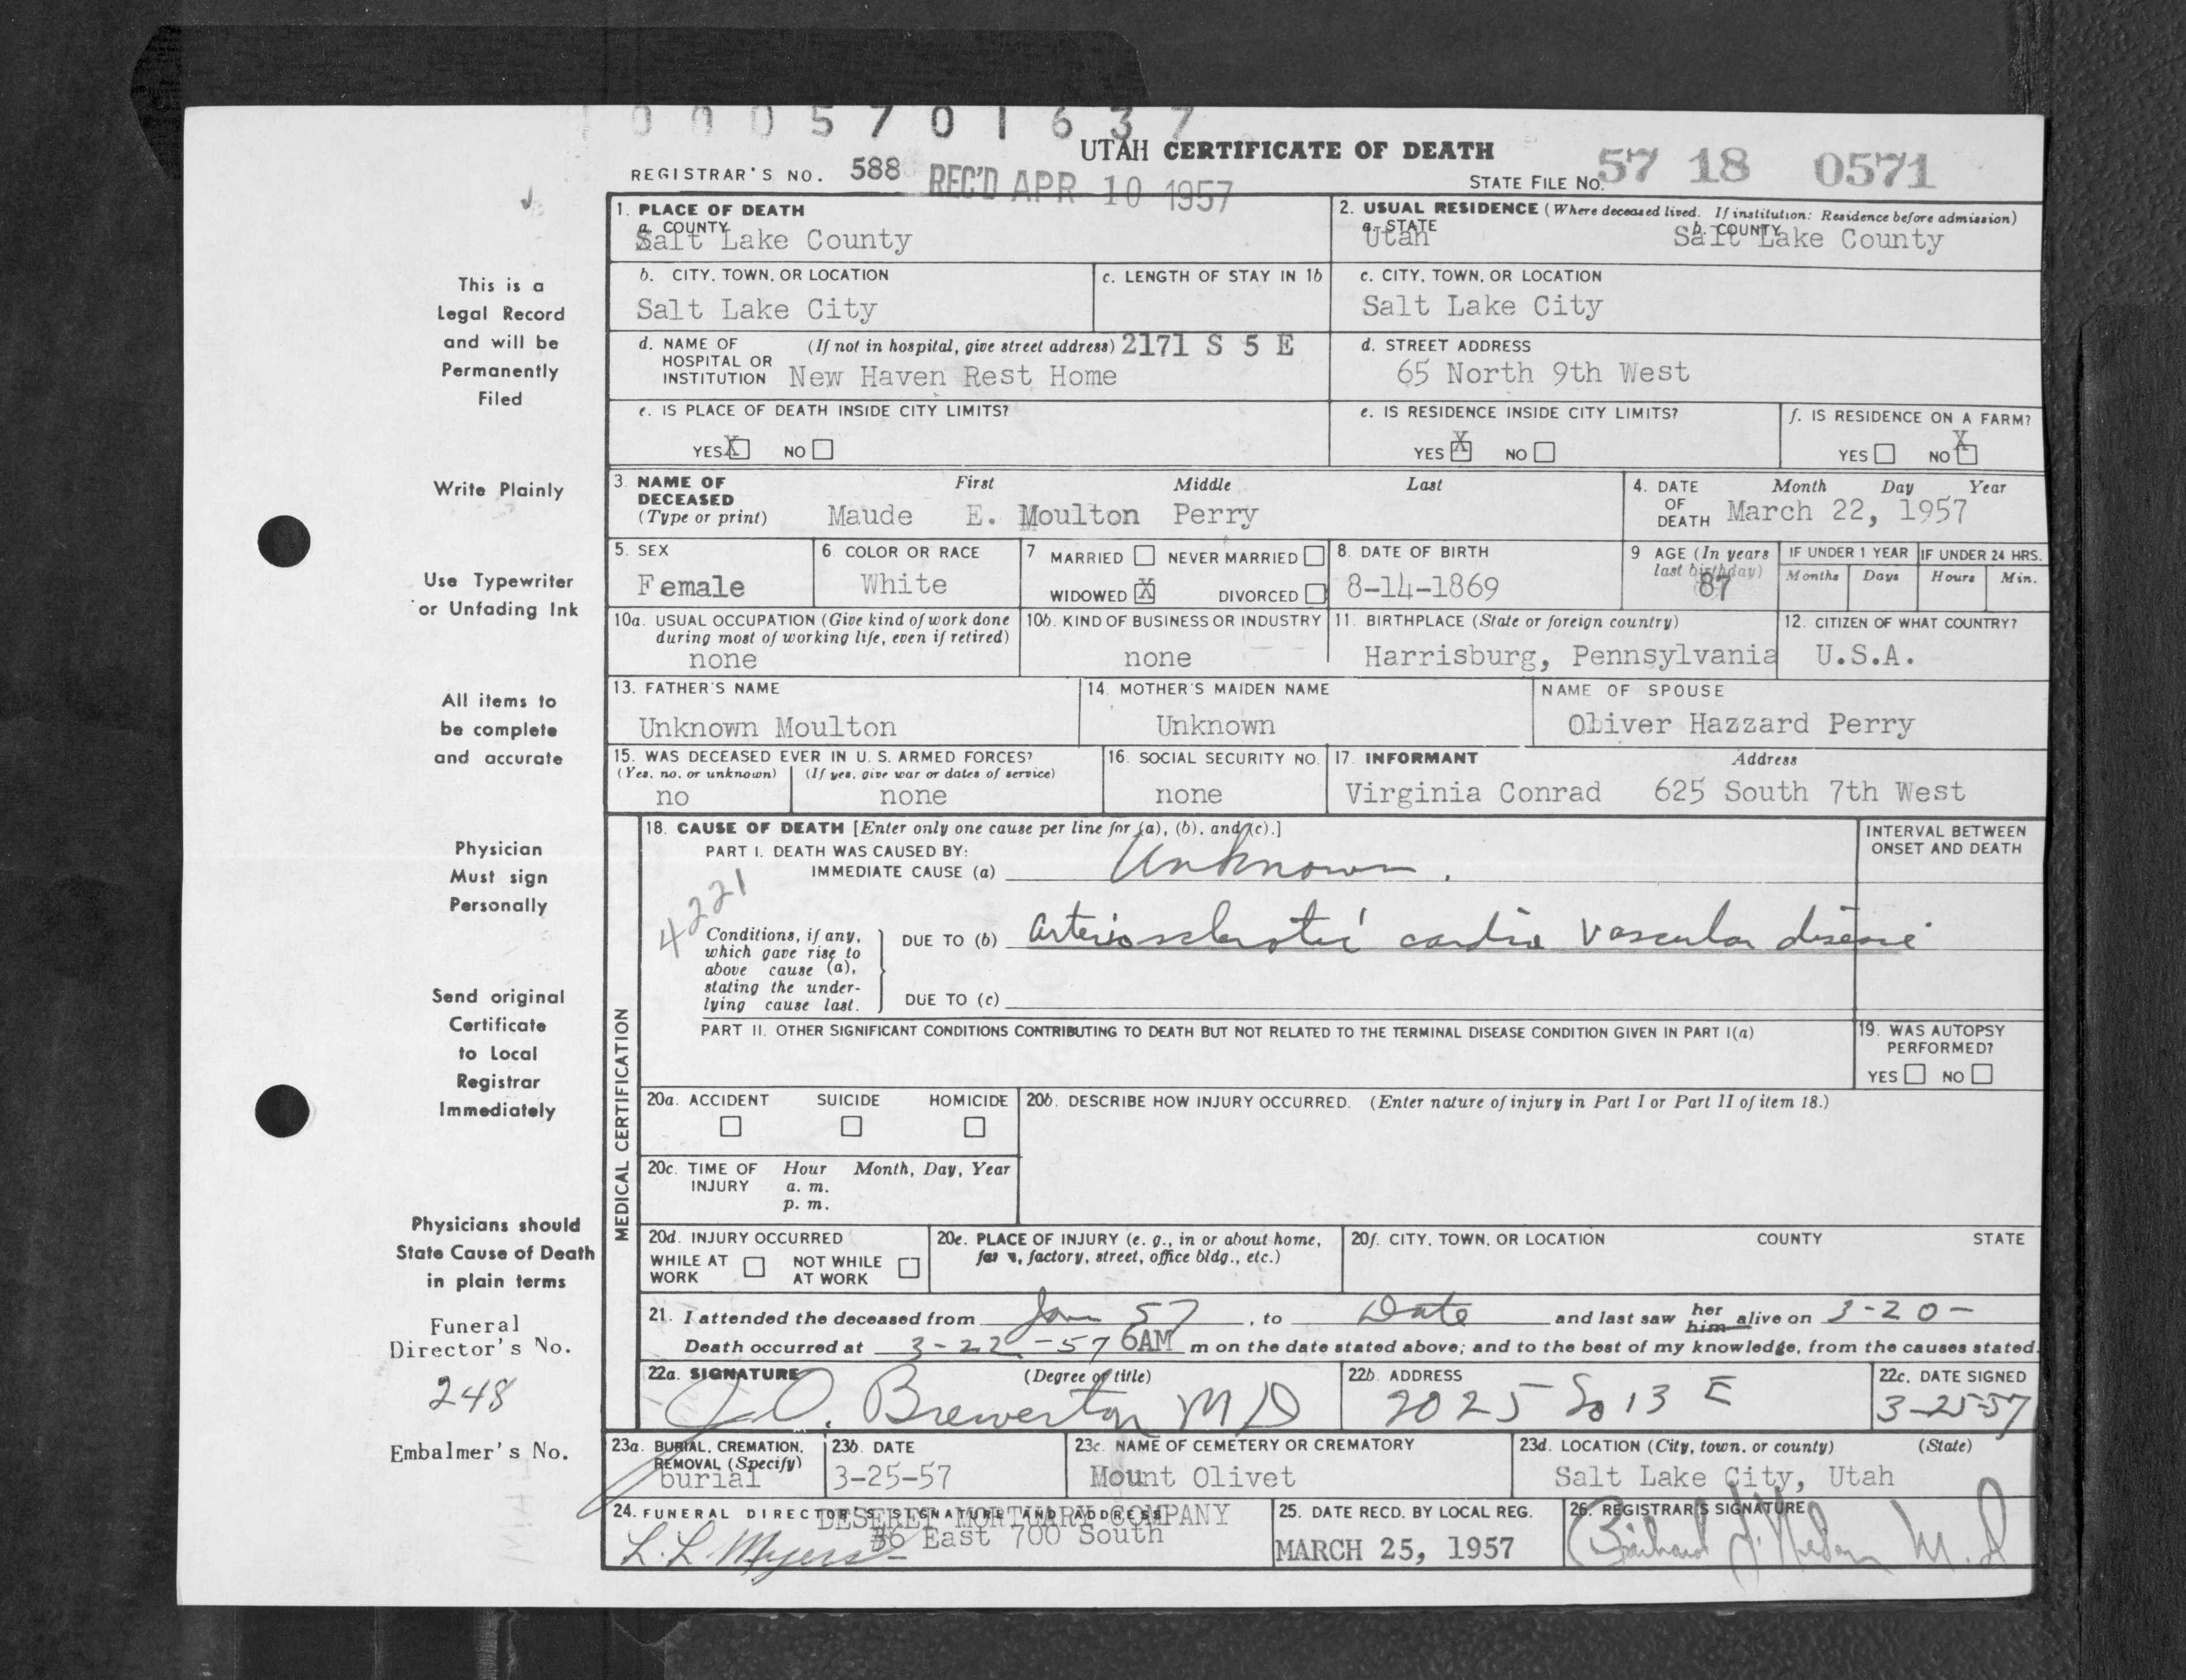 0005701637
UTAH CERTIFICATE OF DEATH
REGISTRAR'S NO. 588 REC'D APR 10 1957 STATE FILE NO. 57 18 0571
1. PLACE OF DEATH
a. COUNTY
Salt Lake County
2. USUAL RESIDENCE (Where deceased lived. If institution: Residence before admission)
a. STATE b. COUNTY
Utah Salt Lake County
b. CITY, TOWN, OR LOCATION
Salt Lake City
c. LENGTH OF STAY IN 1b
c. CITY, TOWN, OR LOCATION
Salt Lake City
d. NAME OF (If not in hospital, give street address) 2171 S 5 E
HOSPITAL OR
INSTITUTION New Haven Rest Home
d. STREET ADDRESS
65 North 9th West
e. IS PLACE OF DEATH INSIDE CITY LIMITS?
YES X NO
e. IS RESIDENCE INSIDE CITY LIMITS?
YES X NO
f. IS RESIDENCE ON A FARM?
YES NO X
3. NAME OF First Middle Last
DECEASED
(Type or print) Maude E. Moulton Perry
4. DATE Month Day Year
OF
DEATH March 22, 1957
5. SEX
Female
6. COLOR OR RACE
White
7 MARRIED NEVER MARRIED
WIDOWED X DIVORCED
8. DATE OF BIRTH
8-14-1869
9 AGE (In years
last birthday)
87
IF UNDER 1 YEAR IF UNDER 24 HRS.
Months Days Hours Min.
10a. USUAL OCCUPATION (Give kind of work done
during most of working life, even if retired)
none
10b. KIND OF BUSINESS OR INDUSTRY
none
11. BIRTHPLACE (State or foreign country)
Harrisburg, Pennsylvania
12. CITIZEN OF WHAT COUNTRY?
U.S.A.
13. FATHER'S NAME
Unknown Moulton
14. MOTHER'S MAIDEN NAME
Unknown
NAME OF SPOUSE
Oliver Hazzard Perry
15. WAS DECEASED EVER IN U. S. ARMED FORCES?
(Yes, no, or unknown) (If yes, give war or dates of service)
no none
16. SOCIAL SECURITY NO.
none
17. INFORMANT Address
Virginia Conrad 625 South 7th West
MEDICAL CERTIFICATION
18. CAUSE OF DEATH [Enter only one cause per line for (a), (b), and (c).]
PART I. DEATH WAS CAUSED BY:
IMMEDIATE CAUSE (a) Unknown.
INTERVAL BETWEEN
ONSET AND DEATH
4221
Conditions, if any,
which gave rise to
above cause (a),
stating the under-
lying cause last.
DUE TO (b) arteriosclerotic cardio vascular disease
DUE TO (c)
PART II. OTHER SIGNIFICANT CONDITIONS CONTRIBUTING TO DEATH BUT NOT RELATED TO THE TERMINAL DISEASE CONDITION GIVEN IN PART I(a)
19. WAS AUTOPSY
PERFORMED?
YES NO
20a. ACCIDENT SUICIDE HOMICIDE
20b. DESCRIBE HOW INJURY OCCURRED. (Enter nature of injury in Part I or Part II of item 18.)
20c. TIME OF Hour Month, Day, Year
INJURY a. m.
p. m.
20d. INJURY OCCURRED
WHILE AT NOT WHILE
WORK AT WORK
20e. PLACE OF INJURY (e. g., in or about home,
farm, factory, street, office bldg., etc.)
20f. CITY, TOWN, OR LOCATION COUNTY STATE
21. I attended the deceased from Jan 57, to Date and last saw her him alive on 3-20-
Death occurred at 3-22-57 6AM m on the date stated above; and to the best of my knowledge, from the causes stated.
22a. SIGNATURE (Degree or title)
J O. Brewerton MD
22b. ADDRESS
2025 So 13 E
22c. DATE SIGNED
3-25-57
23a. BURIAL, CREMATION,
REMOVAL (Specify)
burial
23b. DATE
3-25-57
23c. NAME OF CEMETERY OR CREMATORY
Mount Olivet
23d. LOCATION (City, town, or county) (State)
Salt Lake City, Utah
24. FUNERAL DIRECTOR'S SIGNATURE AND ADDRESS
DESERET MORTUARY COMPANY
36 East 700 South
L. L. Myers
25. DATE RECD. BY LOCAL REG.
MARCH 25, 1957
26. REGISTRAR'S SIGNATURE
M.D
This is a
Legal Record
and will be
Permanently
Filed
Write Plainly
Use Typewriter
or Unfading Ink
All items to
be complete
and accurate
Physician
Must sign
Personally
Send original
Certificate
to Local
Registrar
Immediately
Physicians should
State Cause of Death
in plain terms
Funeral
Director's No.
248
Embalmer's No.